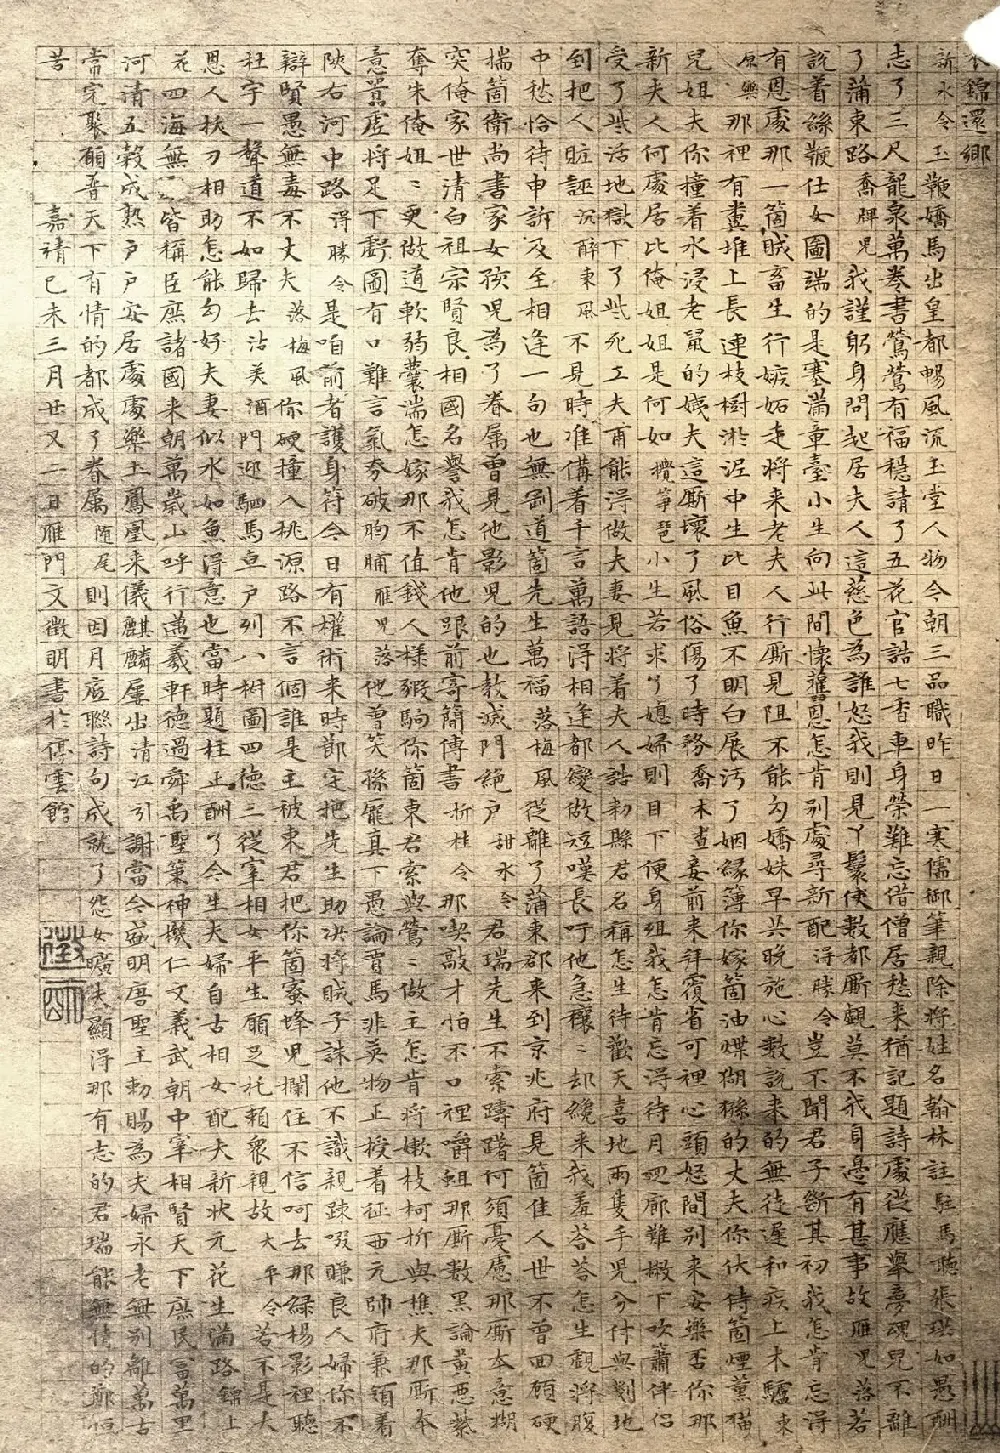 衣錦還鄉
新水令玉鞭嬌馬出皇都暢風流玉堂人物今朝三品職昨日一寒儒御筆親除將硅名翰林註駐馬聽張珙如愚酬
志了三尺龍泉萬卷書鶯鶯有福穩請了五花官誥七香車身榮難忘借僧居愁来猶記題詩處從應舉夢魂兒不離
了蒲東路喬牌兒我謹躬身問起居夫人這慈色為誰怒我則見丫鬟使數都廝覷莫不我身邊有甚事故雁兒落若
說着絲鞭仕女圖端的是塞滿章臺小生向此間懷舊恩怎肯別處尋新配得勝令豈不聞君子斷其初我怎肯忘得
有恩處那一箇賊畜生行嫉妬走將来老夫人行廝見阻不能勾嬌姝早共晚施心數說来的無徒遲和疾上木驢東
原樂那裡有糞堆上長連枝樹淤泥中生比目魚不明白展污了姻緣簿你嫁箇油煠猢猻的丈夫你伏侍箇煙薰猫
兒姐夫你撞着水浸老鼠的姨夫這廝壞了風俗傷了時務喬木查妾前来拜覆省可裡心頭怒間別来安樂否你那
新夫人何處居比俺姐姐是何如攪箏琶小生若求了媳婦則目下便身殂我怎肯忘得待月迴廊難撇下吹簫伴侶
受了些活地獄下了些死工夫甫能得做夫妻見將着夫人誥勑縣君名稱怎生待歡天喜地兩隻手兒分付與剗地
到把人贓誣沉醉東風不見時准備着千言萬語得相逢都變做短嘆長吁他急穰々却纔来我羞荅荅怎生覷將腹
中愁恰待申訴及至相逢一句也無剛道箇先生萬福落梅風從離了蒲東郡来到京兆府見箇佳人世不曾回顧硬
揣箇衛尚書家女孩兒為了眷属曾見他影兒的也教滅門絕戶甜水令君瑞先生不索躊躇何須憂慮那廝本意糊
突俺家世清白祖宗賢良相國名譽我怎肯他跟前寄簡傳書折桂令那喫敲才怕不口裡嚼蛆那廝數黑論黃惡紫
奪朱俺姐々更做道軟弱囊揣怎嫁那不值錢人樣猳駒你箇東君索與鶯々做主怎肯將嫩枝柯折與樵夫那廝本
意囂虛將足下虧圖有口難言氣夯破胸脯雁兒落他曾笑孫龐真下愚論賈馬非英物正授着征西元帥府兼領着
陜右河中路得勝令是咱前者護身符今日有權術来時節定把先生助决將賊子誅他不識親疎啜賺良人婦你不
辯賢愚無毒不丈夫落梅風你硬撞入桃源路不言個誰是主被東君把你箇蜜蜂兒攔住不信呵去那綠楊影裡聽
杜宇一聲道不如歸去沽美酒門迎駟馬車戶列八椒圖四德三從宰相女平生願足託賴衆親故太平令若不是大
恩人拔刀相助怎能勾好夫妻似水如魚得意也當時題柱正酬了今生夫婦自古相女配夫新狀元花生滿路錦上
花四海無々皆稱臣庶諸國来朝萬歲山呼行邁羲軒德過舜禹聖策神機仁文義武朝中宰相賢天下庶民富萬里
河清五穀成熟戶戶安居處處樂土鳳凰来儀麒麟屢出清江引謝當今盛明唐聖主勅賜為夫婦永老無別離萬古
常完聚願普天下有情的都成了眷属随尾則因月底聯詩句成就了怨女曠夫顯得那有志的君瑞能無情的鄭恒
苦
嘉靖己未三月廿又二日雁門文徵明書於停雲館
徵明